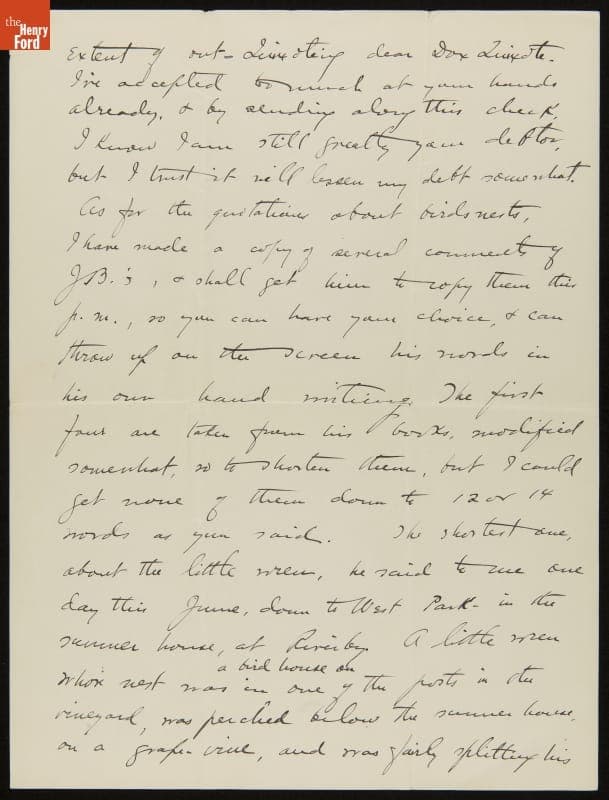 the
Henry
Ford
extent of out-Quixoting dear Don Quixote.
I've accepted too much at your hands
already, & by sending along this check,
I know I am still greatly your debtor,
but I trust it will lessen my debt somewhat.
As for the quotations about birds nests,
I have made a copy of several comments of
J.B.'s, & shall get him to copy them this
p.m., so you can have your choice, & can
throw up on the screen his words in
his own hand writing. The first
four are taken from his books, modified
somewhat, so to shorten them, but I could
get none of them down to 12 or 14
words as you said. The shortest one,
about the little wren, he said to me one
day this June, down to West Park - in the
summer house, at Riverby. A little wren
whose nest was in a bird house on one of the posts in the
vineyard, was perched below the summer house,
on a grape-vine, and was fairly splitting his